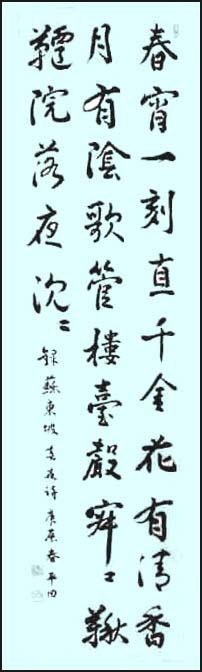 春宵一刻直千金花有清香
月有陰歌管樓臺聲寂〻鞦
韆院落夜沈〻
錄蘇東坡春夜詩庚辰春平